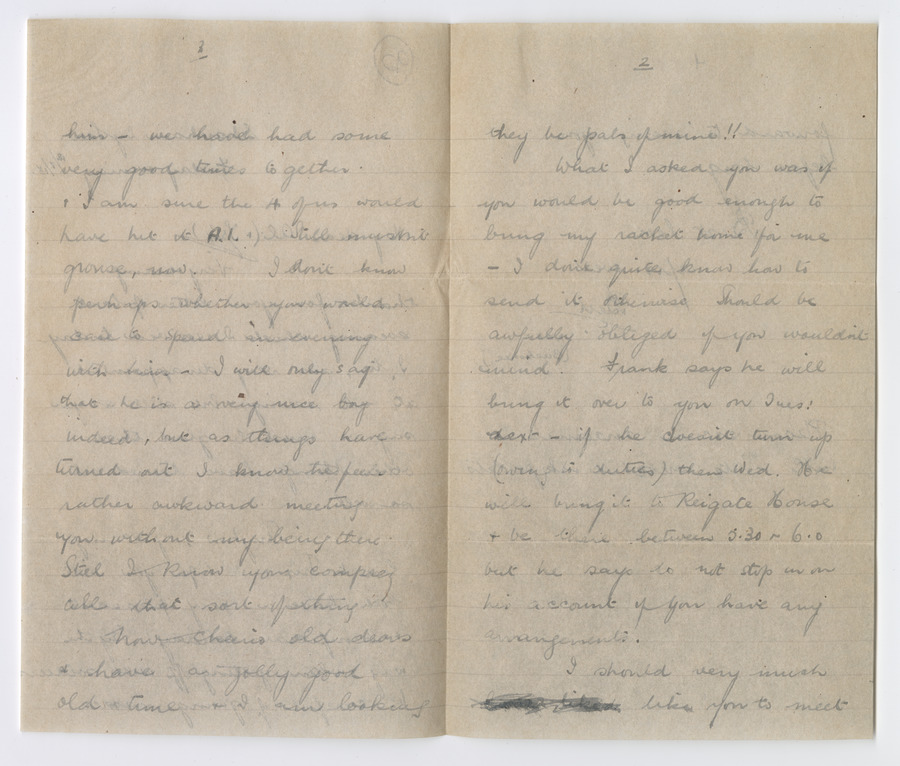 2
they be pals of mine!!
What I asked you was if
you would be good enough to
bring my racket home for me
- I don't quite know how to
send it otherwise should be
awfully obliged if you wouldn't
mind. Frank says he will
bring it over to you on Tues:
next - if he doesn't turn up
(owing to duties) then Wed. He
will bring it to Reigate House
+ be there between 5.30 + 6.0
but he says do not stop in on
his account if you have any
arrangements.
I should very much
like you to meet
3
him - we have had some
very good times together.
I am sure the 4 of us would
have hit it (A.1.) Still mustn't
grouse, now. I don't know
perhaps whether you would
care to spend an evening
with him - I will only say
that he is a very nice boy
indeed, but as things have
turned out I know he feels
rather awkward meeting
you without my being there.
Still I know you
all that sort of thing
Now cheerio old dears
+ have a jolly good
old time + I am looking